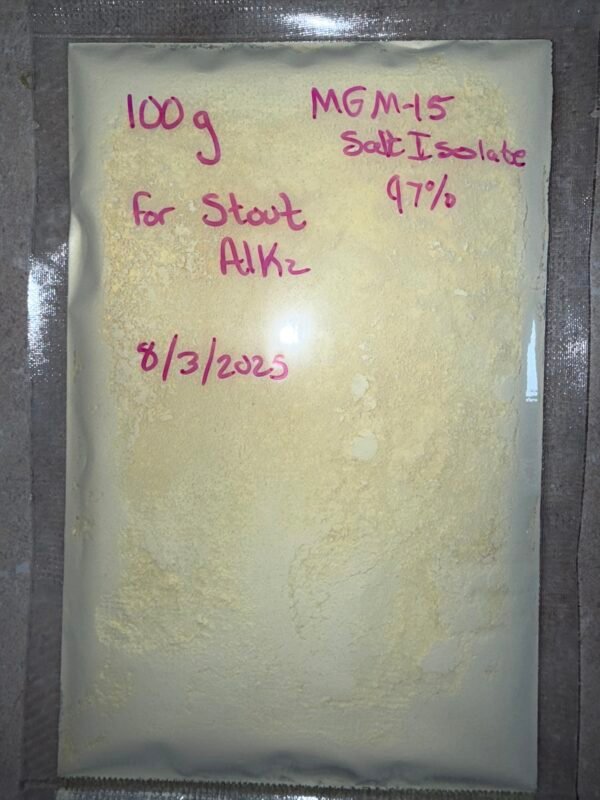 100 g
MGM-15
Salt Isolate
97%
For Stout
AlKz
8/3/2025